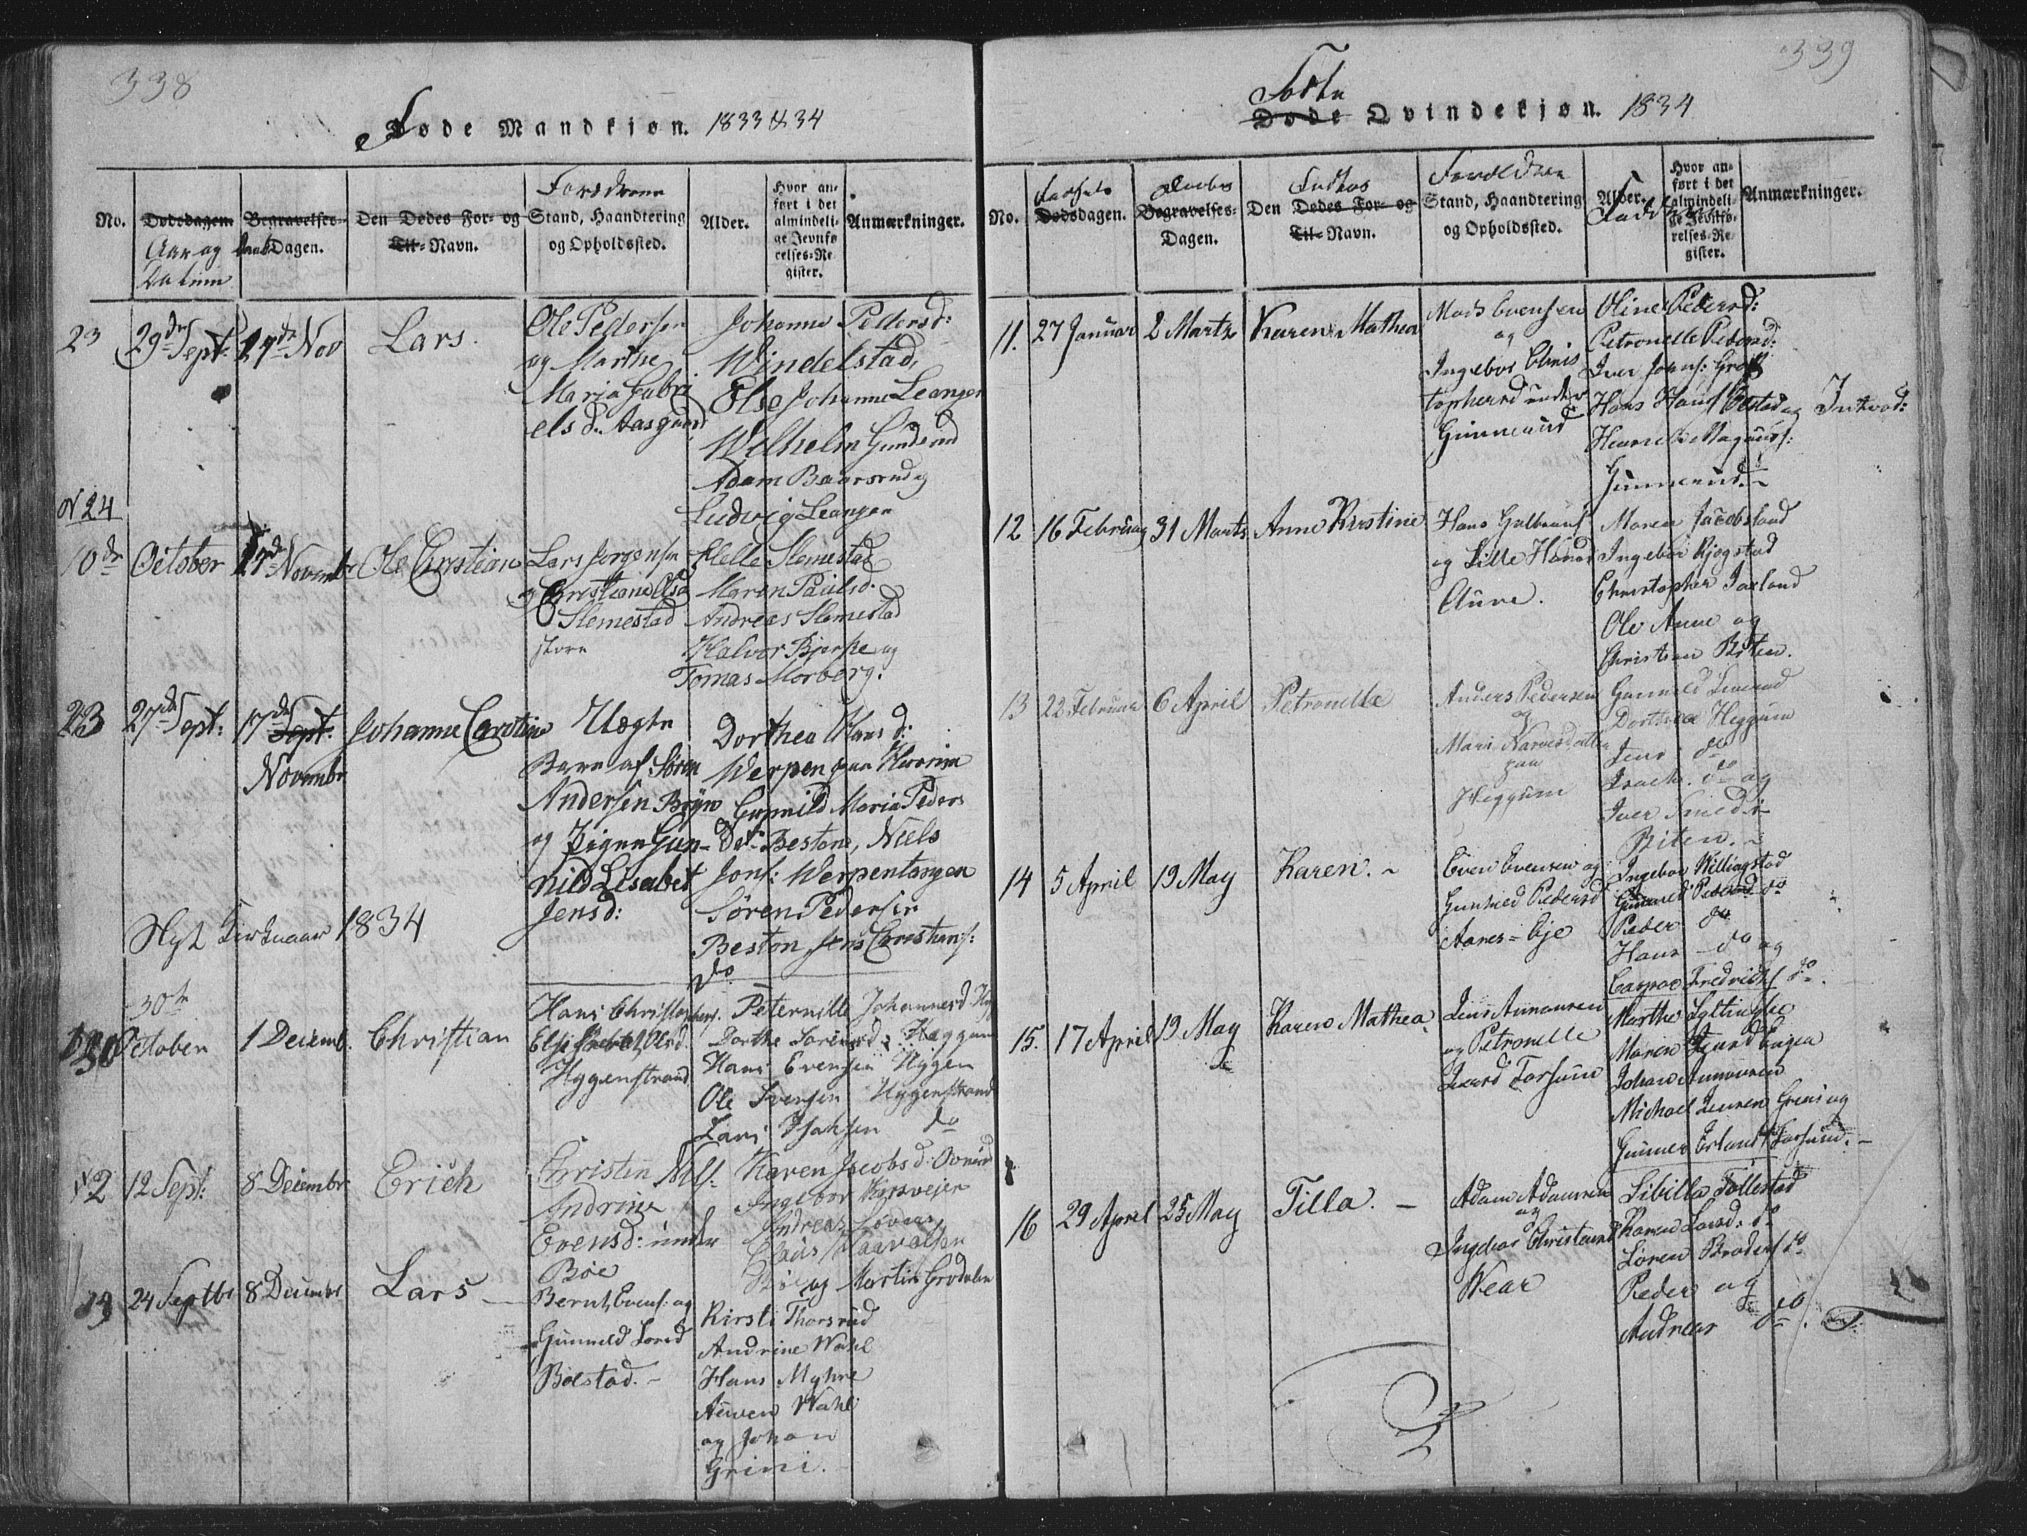 338
Føde Mandkjøn. 1833 & 34
No.
Dødsdagen.
Aar og
Datum
Begravelses-
Daab Dagen.
Den Dødes For- og
Til-Navn.
Forældrene
Stand, Haandtering
og Opholdssted.
Alder.
Hvor an-
ført i det
almindeli-
ge Jevnfø
relses-Re-
gister.
Anmærkninger.
23 29de Sept: 17de Nov Lars.
Ole Pedersen
og Marthe
Maria Gabri
els d. Aasgaard
Johanne Pedersd:
Windelstad,
Else Johanne Leangen
Welhelm Gundsrud
Adam Baarsrud og
Ludvig Leangen
N 24
10de October 17de Novembr Ole Christian
Lars Jørgensen
og Christiane Olsd
Slemestad
Store
Helle Slemestad
Maren Paulsd.
Andreas Slemestad
Halvor Bjerke og
Tomas Morberg.
23 27de Sept: 17de Sept:
Novembr
Johanne Carstine
Uægte
Barn af: Søren
Andersen Bryn
og Pigen Gun-
hild Lisabet
Jensd:
Dorthea Hans d:
Werpen
Gunnild Maria Peders
Det: Beston, Niels
Jons: Werpentangen
Søren Pedersen
Beston Jens Christians:
do
Nyt Kirkeaar 1834
30te
October 1 Decemb. Christian
Hans Christophers.
Hyggenstrand
Peternille Johannesd
Dorthe Sørensd. Heggum
Hans Evensen Hyggen
Ole Svensen Hyggenstrand
Lars Isaksen do
2 12 Sept: 8 Decembr Erich
Christen Nils:
Andrine
Evensd: under
Bøe
Karen Jacobs d:
Ingebor
Andreas
Claus
Bøe og Martin Grodalen
24 Septbr 8 Decembr Lars
Bernt Evens: og
Gunneld Larsd
Bølstad.
Kirsti Thorsrud
Andrine Wahl
Hans Myhre
Auven Wahl
og Johan
Grini.
339
Fødte
Døde Qvindekjøn. 1834
No.
Fødsels
Dødsdagen.
Daabs
Begravelses-
Dagen.
Den Dødes For- og
Til-Navn.
Forældrene
Stand, Haandtering
og Opholdssted.
Alder.
Faddere
Hvor an-
ført i det
almindeli-
ge Jevnfø-
relses-Re-
gister.
Anmærkninger.
11. 27 Januar 2 Marts Karen Mathea
Mads Evensen
og
Ingebor Chris
tophersd under
Gunnerud
Oline Pedersd:
Petronelle Pedersd:
Iver Joens:
Hans Hans Bøstad og
Henrik Magnus:
Gunnerud.
Introd:
12 16 Februar 31 Marts Anne Kirstine
Hans Gulbrans
og Lille Hansd
Auve.
Maren Jacobsland
Ingebor Kjøgstad
Christopher Jaxland
Ole Aune og
Christian Biten.
13 22 Februar 6 April Petronelle
Anders Pedersen
og
Mari
paa
Heggum
Gunneld
Dorthea Heggum
Jens do
Isach. do og
Iver Smed
Biten.
14 5 April 19 May Karen.
Even Evensen og
Gunhild Pedersd
Aanes-Eje
Ingebor Killingstad
Gunneld Pedersd do
Peder do
Hans do og
Caspar Fredriks do.
15. 17 April 19 May Karen Mathea
Jens Amunsen
og Petronelle
Iversd Torsum
Marthe
Maren
Johan Amunsen
Michael Jensen Grini og
Gunner Erland
16 29 April 25 May Tilla.
Adam Adamsen
og
Ingebor Christensd
Near
Sibilla Tollestad
Karen Larsd: do
Søren Broders do
Peder og
Andreas do.